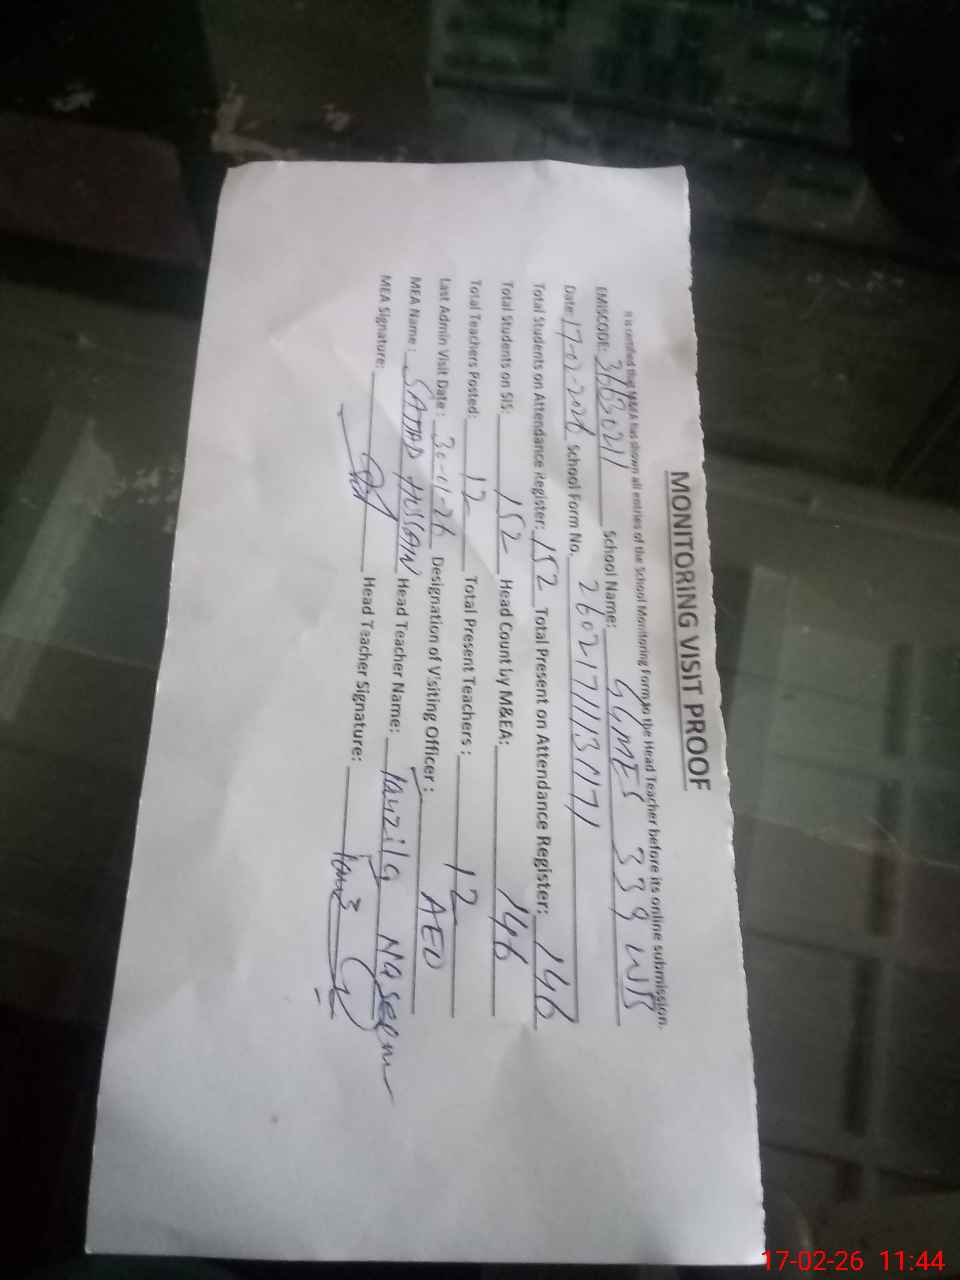 MONITORING VISIT PROOF
It is certified that M&EA has shown all entries of the School Monitoring Form to the Head Teacher before its online submission.
EMISCODE: 36630211 School Name: GGMES 339 WB
Date: 17-02-2026 School Form No. 
Total Students on Attendance Register: 152 Total Present on Attendance Register: 146
Total Students on SIS: 152 Head Count by M&EA: 146
Total Teachers Posted: 12 Total Present Teachers: 12
Last Admin Visit Date: 30-01-26 Designation of Visiting Officer: AEO
MEA Name: SAJJAD HUSSAIN Head Teacher Name: Tanzila Naseem
MEA Signature: Head Teacher Signature:
17-02-26 11:44